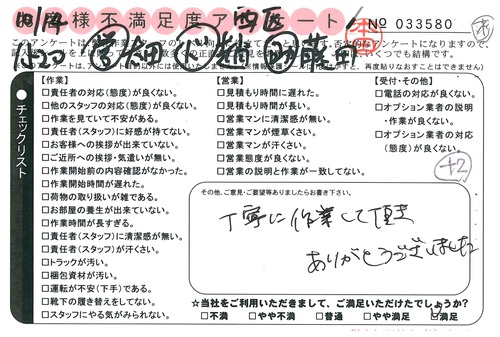 様不満足度アンケート
No 033580
【作業】
□責任者の対応(態度)が良くない。
□他のスタッフの対応(態度)が良くない。
□作業を見ていて不安がある。
□責任者(スタッフ)に好感が持てない。
□お客様への挨拶が出来ていない。
□ご近所への挨拶・気遣いが無い。
□作業開始前の内容確認がなかった。
□作業開始時間が遅れた。
□荷物の取り扱いが雑である。
□お部屋の養生が出来ていない。
□作業時間が長すぎる。
□責任者(スタッフ)に清潔感が無い。
□責任者(スタッフ)が汗くさい。
□トラックが汚い。
□梱包資材が汚い。
□運転が不安(下手)である。
□靴下の履き替えをしてない。
□スタッフにやる気がみられない。
【営業】
□見積もり時間に遅れた。
□見積もり時間が長い。
□営業マンに清潔感が無い。
□営業マンが煙草くさい。
□営業マンが汗くさい。
□営業態度が良くない。
□営業の説明と作業が一致してない。
【受付・その他】
□電話の対応が良くない。
□オプション業者の説明
・作業が良くない。
□オプション業者の対応
(態度)が良くない。
チェックリスト
+2
その他、ご意見・ご要望等ありましたらお書き下さい。
丁寧に作業して頂き
ありがとうございました
☆当社をご利用いただきまして、ご満足いただけたでしょうか?
□不満 □やや不満 □普通 □やや満足 □満足